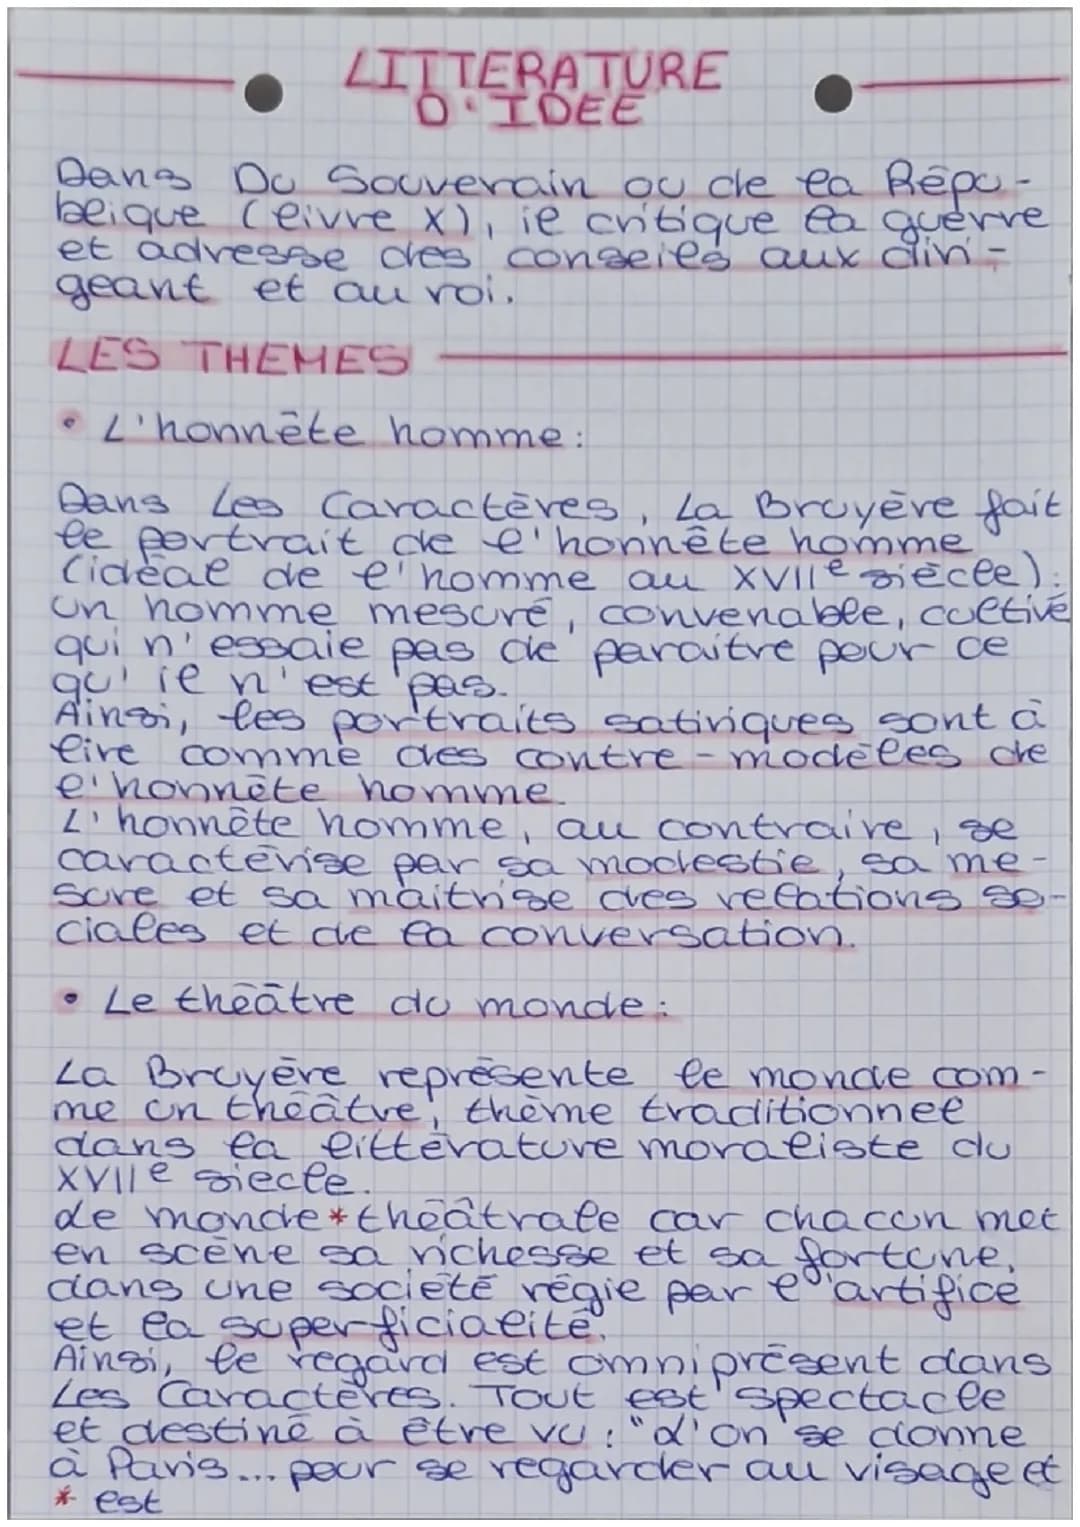 LITTERATURE
D'IDEE
Dans Du Souverain ou de la Répu-
blique (livre X), il critique la guerre
et adresse des conseils aux diri-
geant et au roi.
LES THEMES
• L'honnête homme:
Dans Les Caractères, La Bruyère fait
le portrait de l'honnête homme
(idéal de l'homme au XVIIe siècle):
un homme mesuré, convenable, cultivé
qui n'essaie pas de paraitre pour ce
qu'il n'est pas.
Ainsi, les portraits satiriques sont à
lire comme des contre-modèles de
l'honnête homme.
L'honnête homme, au contraire, se
caractérise par sa modestie, sa me-
sure et sa maitrise des relations so-
ciales et de la conversation.
• Le théâtre du monde:
La Bruyère représente le monde com-
me un théâtre, thème traditionnel
dans la littérature moraliste du
XVIIe siecle.
Le monde * théâtrale car chacun met
en scène sa richesse et sa fortune,
dans une société régie par l'artifice
et la superficialité.
Ainsi, le regard est omniprésent dans
Les Caractères. Tout est spectacle
et destiné à être vu: "L'on se donne
à Paris... pour se regarder au visage et
* est